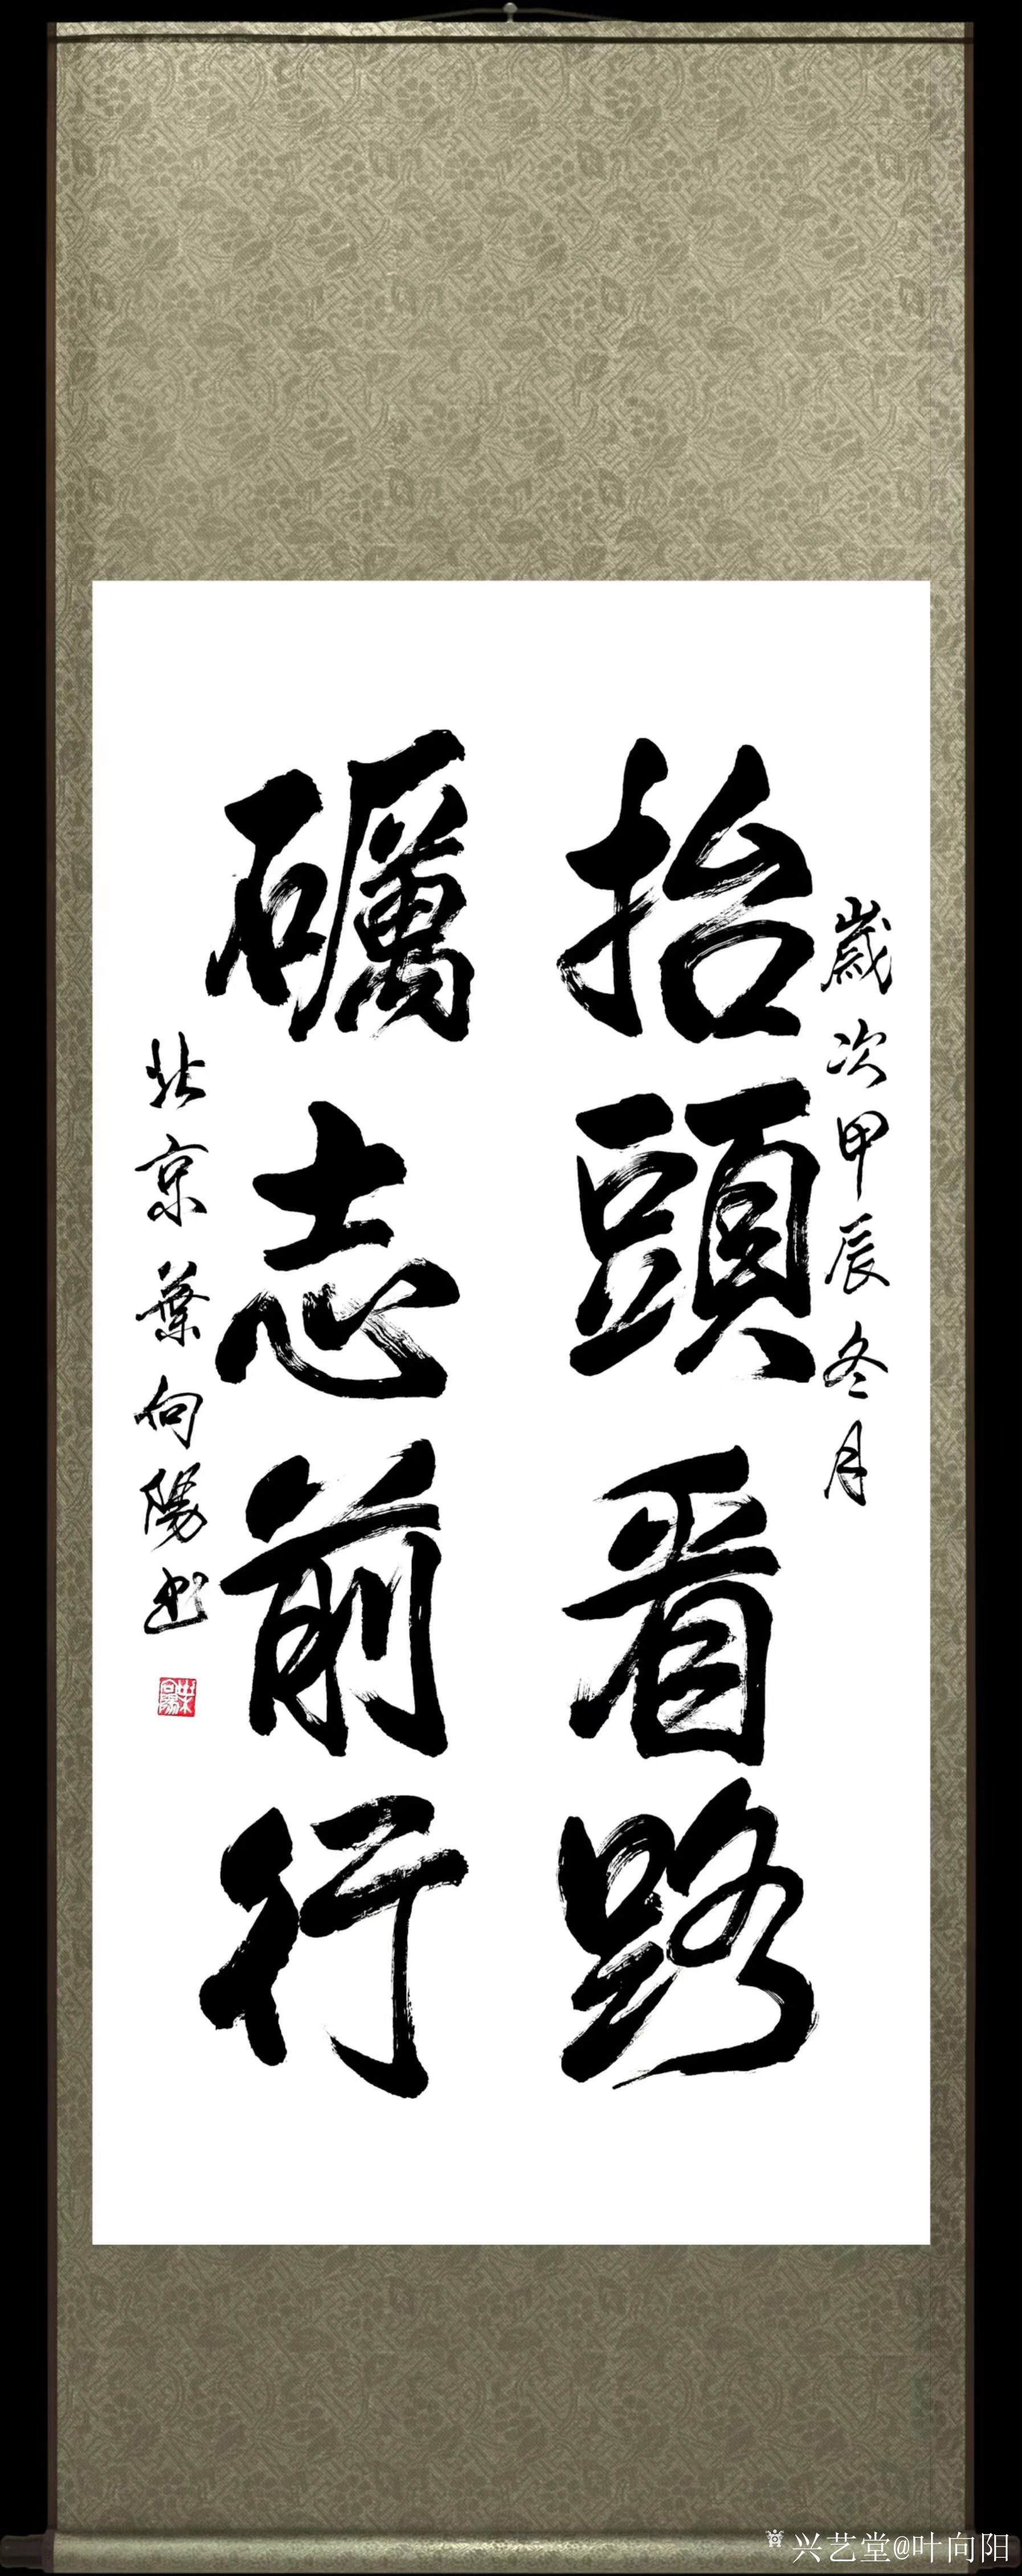 歲次甲辰冬月
抬頭看路
礪志前行
北京葉向陽书
葉向陽
兴艺堂@叶向阳